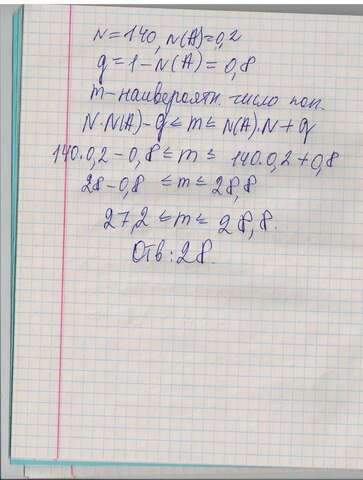 N=140, N(A)=0,2
q=1-N(A)=0,8
m-наивероятн. число поп.
N·N(A)-q≤m≤N(A)·N+q
140·0,2-0,8≤m≤140·0,2+0,8
28-0,8≤m≤28,8
27,2≤m≤28,8.
Отв:28.